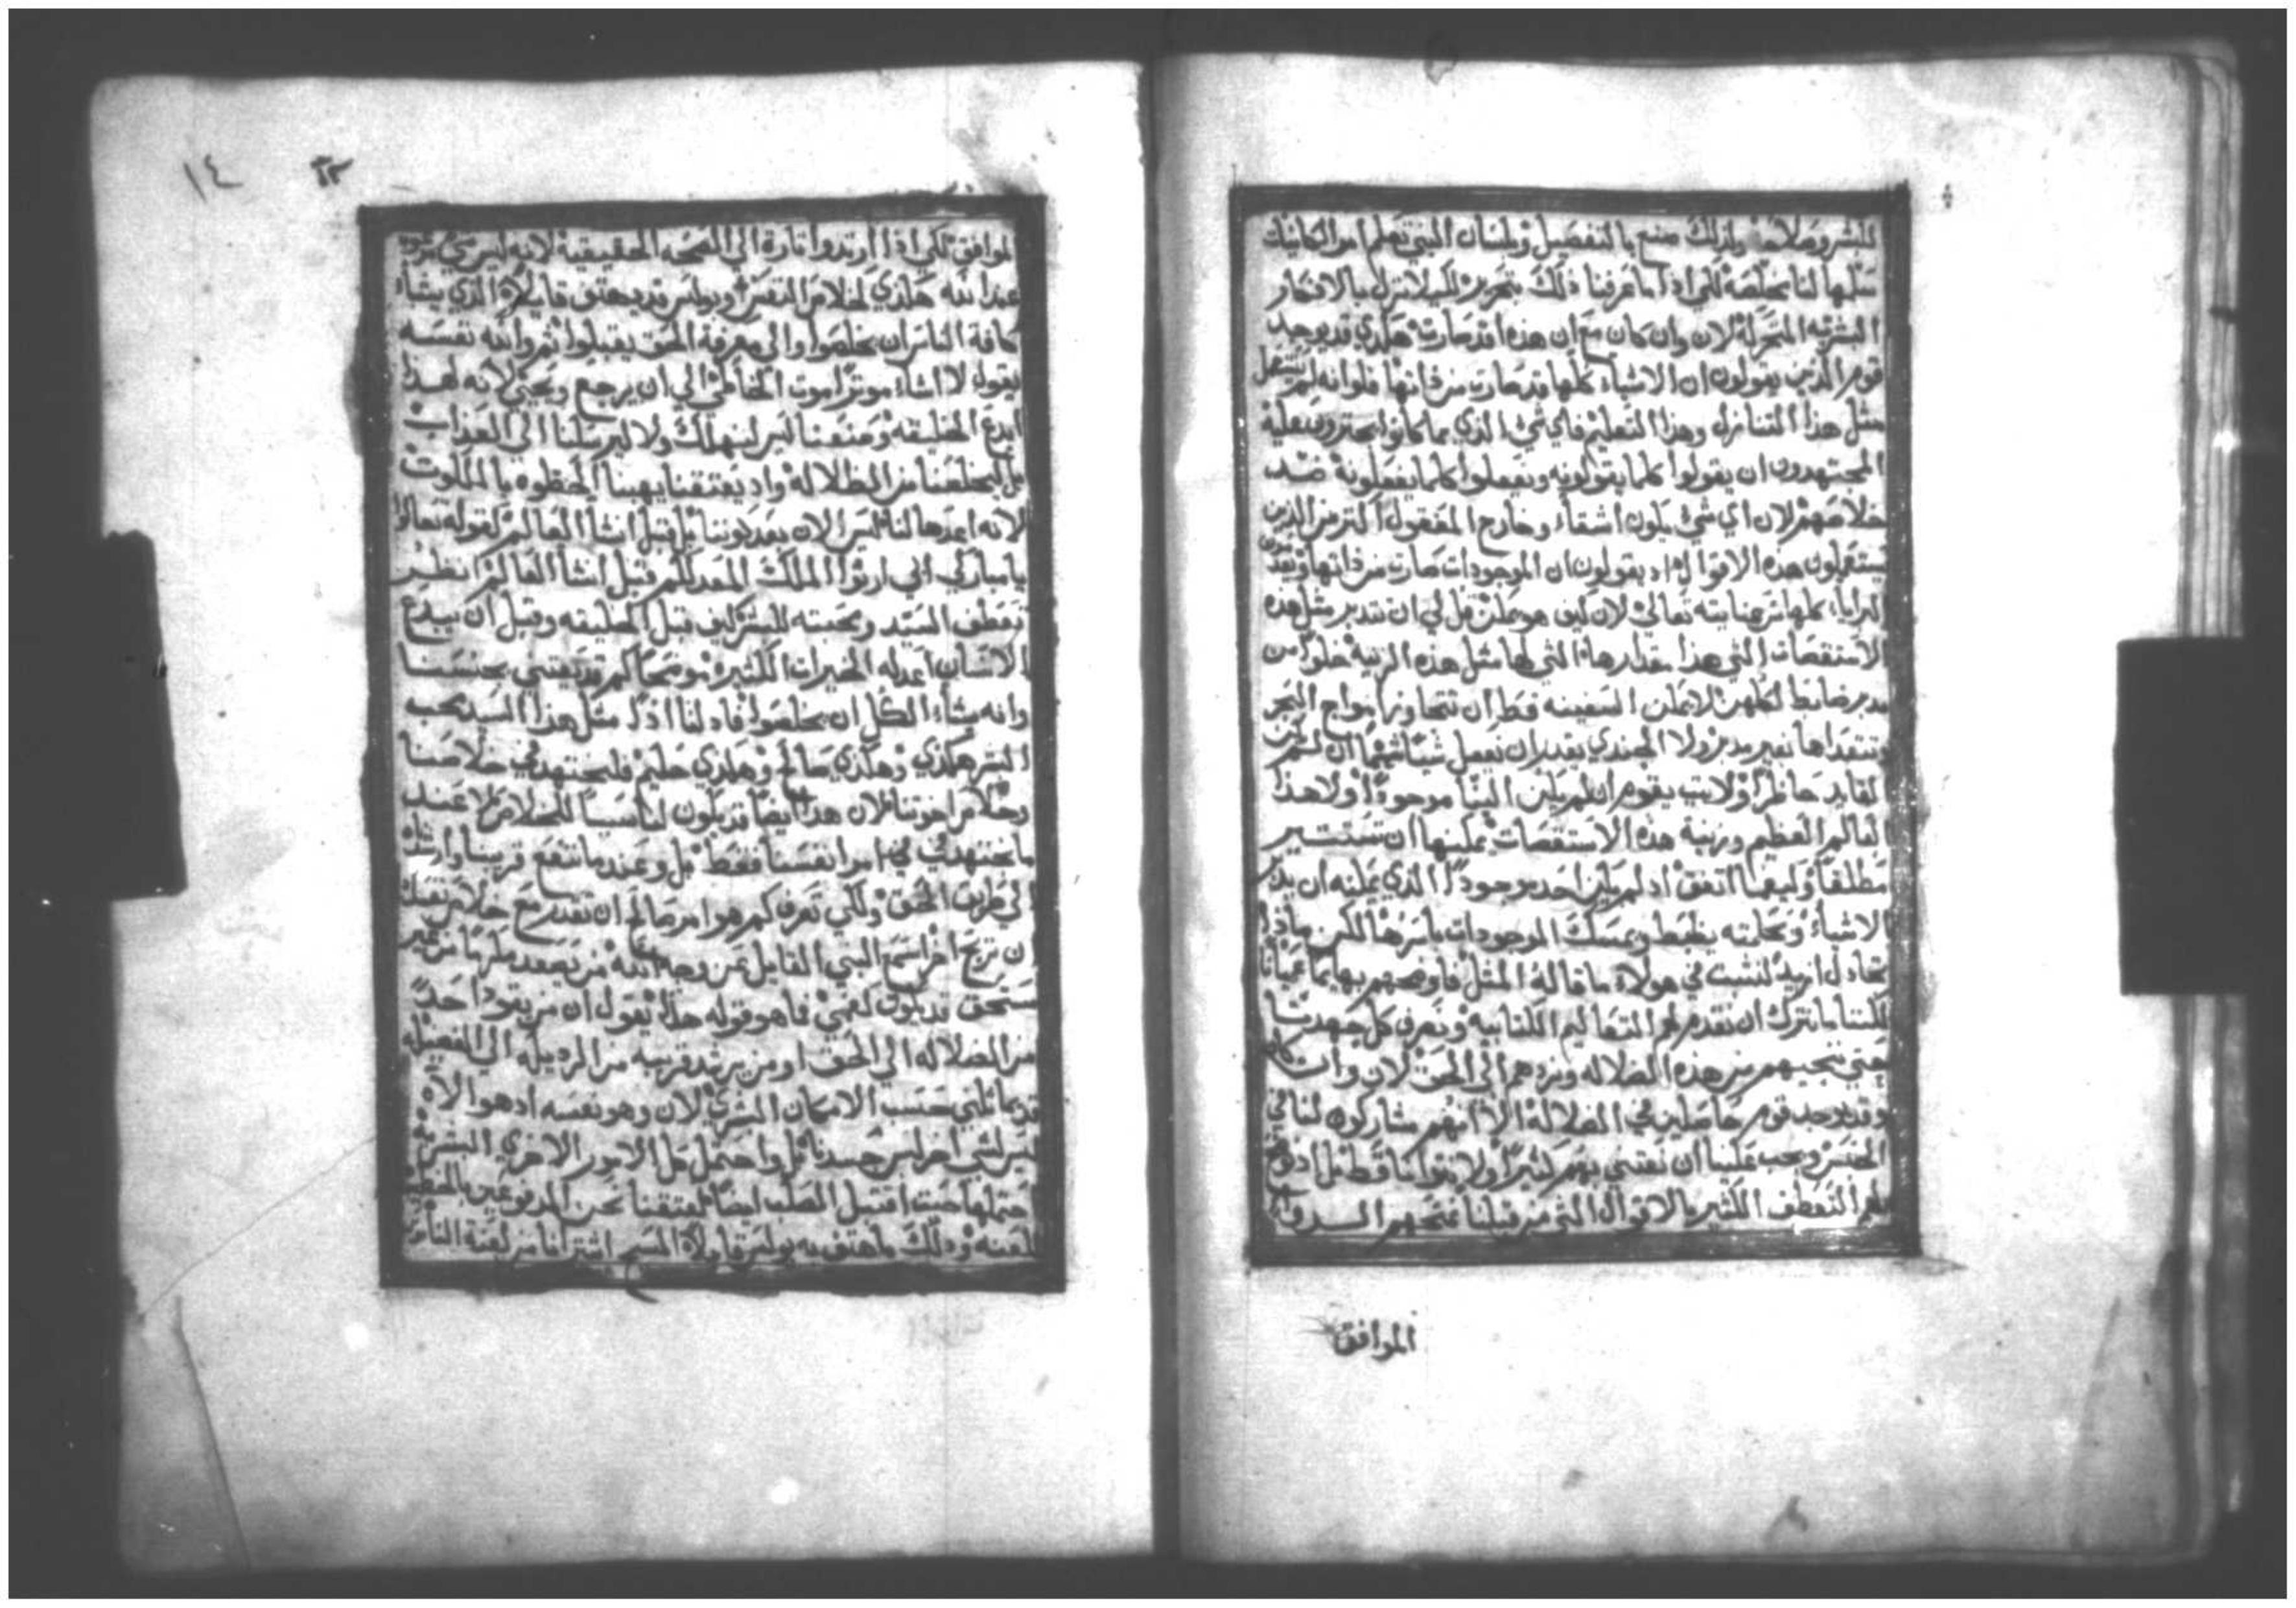 للبشر وصلاحه ولذلك صنع بالتفصيل وبلسان النبي تعلم امر الكاينات
كلها لنا بخلصه لكي اذا ما عرفنا ذلك بتحرير لكيلا نزل بالافكار
البشريه المتحركة لان وان كان مع ان هذه قد صارت هكذي قد يوجد
قوم الذين يقولون ان الاشياء كلها قد صارت من ذاتها فلو انه لم يستعمل
مثل هذا التنازل وهذا التعليم فاي شي الذي ما كانوا يجترون عليه
المجتهدون ان يقولوا كلما يقولونه ويفعلوا كلما يفعلونه ضد
خلاصهم لان اي شي يكون اشقاء وخارج المعقول اكثر من الذين
يستعملون هذه الاقوال اد يقولون ان الموجودات صارت من ذاتها
البرايا كلها من عنايته تعالي لان كيف هو ممكن قل لي ان تتدبر مثل هذه
الاستقصات التي هذا مقدارها التي لها مثل هذه الزينه خلوا من
مدبر ضابط لكلهن لا يمكن السفينه قط ان تتجاوز امواج البحر
وتنقدها بغير مدبر ولا الجندي يقدر ان يعمل شيا شهما ان لم يكن
القايد حاظرا ولا بيت يقوم ان لم يكن البنا موجودا ولا هذا
العالم العظيم وزينة هذه الاستقصات يمكنها ان تستسير
مطلقا وكيفما اتفق اد لم يكن احد موجودا الذي يمكنه ان يدبر
الاشياء وبحكمته يظبط ويمسك الموجودات باسرها لكن ماذا
نجادل ازيد لنثبت في هولاة ما قاله المثل فاوضهم بهايما عميانا
لكننا ما نترك ان نقدم لهم التعاليم الكتابيه ونعرف كل جهدنا
حتي نجيبهم من هذه الضلاله ونردهم الي الحق لان وان كان
وقد يوجد قوم حاصلين في الضلالة الا انهم مشاركون لنا في
الجنس ويجب علينا ان نعتني بهم كثيرا ولا نتوانا قط بل اد نوضح
لهم التعطف الكثير بالاقوال التي من قبلنا نمنحهم الدوا
الموافق
١٤
الموافق لكي اذا ارتدوا تارة الي الصحه الحقيقيه لانه ليس شي مرتوه
عند الله هكذي كخلاص النفس وبولس قد يهتف قايلاة الذي يشاء
كافة الناس ان يخلصوا والي معرفة الحق يقبلوا ثم والله نفسه
يقول لا اشاء موتا موت الخاطي الي ان يرجع ويحيي لانه لهذا
ابدع الخليقه وصنعنا ليس لنهلك ولا ليرسلنا الي العذاب
بل ليخلصنا من الظلاله واد يعتقنا يهبنا الحظوه بالملكوت
لانه اعدها لنا ليس الان بعد كوننا بل قبل انشا العالم كقوله تعالوا
يا مباركي ابي ارثوا الملك المعد لكم قبل انشا العالم انظر
تعطف السيد ومحبته للبشر كيف قبل الخليقه وقبل ان يبدع
الانسان اعد له الخيرات الكثيره موضحا كم قد يعتني بجنسنا
وانه يشاء الكل ان يخلصوا فاد لنا اذا مثل هذا السيد محب
البشر هكذي وهكذي صالح وهكذي حليم فليجتهد في خلاصنا
وخلاص اخوتنا لان هذا ايضا قد يكون لنا سببا للخلاص لا عند
ما نجتهد في امر انفسنا فقط بل وعند ما ننفع قريبنا وارتد
الي طريق الحق ولكي تعرف كم هو امر صالح ان تقدر مع خلاص نفسك
ان تربح اخر اسمع النبي القايل عن وجه الله من يصعد مكرما من غير
مستحق قد يكون كفمي فما هو قوله هذا يقول ان من يقود احدا
من الضلاله الي الحق او من يرشد قريبه من الرديله الي الفضيله
قد يماثلني حسب الامكان البشري لان وهو نفسه اد هو الاة
ليس لشي اخر لبس جسدنا بل واحتمل كل الامور الاخري البشريه
احتملها حيث اقتبل الصلب ايضا ليعتقنا نحن المدفوعين بالخطيه
للعنه وذلك ما هتف به بولس قايلاة المسيح اشترانا من لعنة الناموس